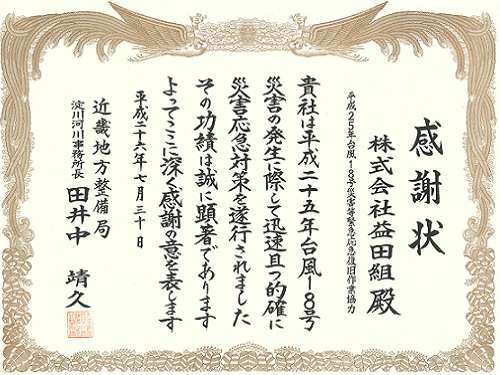 感謝状
株式会社益田組 殿
平成25年台風18号災害等緊急応急復旧作業協力
貴社は平成二十五年台風18号
災害の発生に際して迅速且つ的確に
災害応急対策を遂行されました
その功績は誠に顕著であります
よってここに深く感謝の意を表します
平成二十六年七月三十日
近畿地方整備局
淀川河川事務所長 田井中 靖久